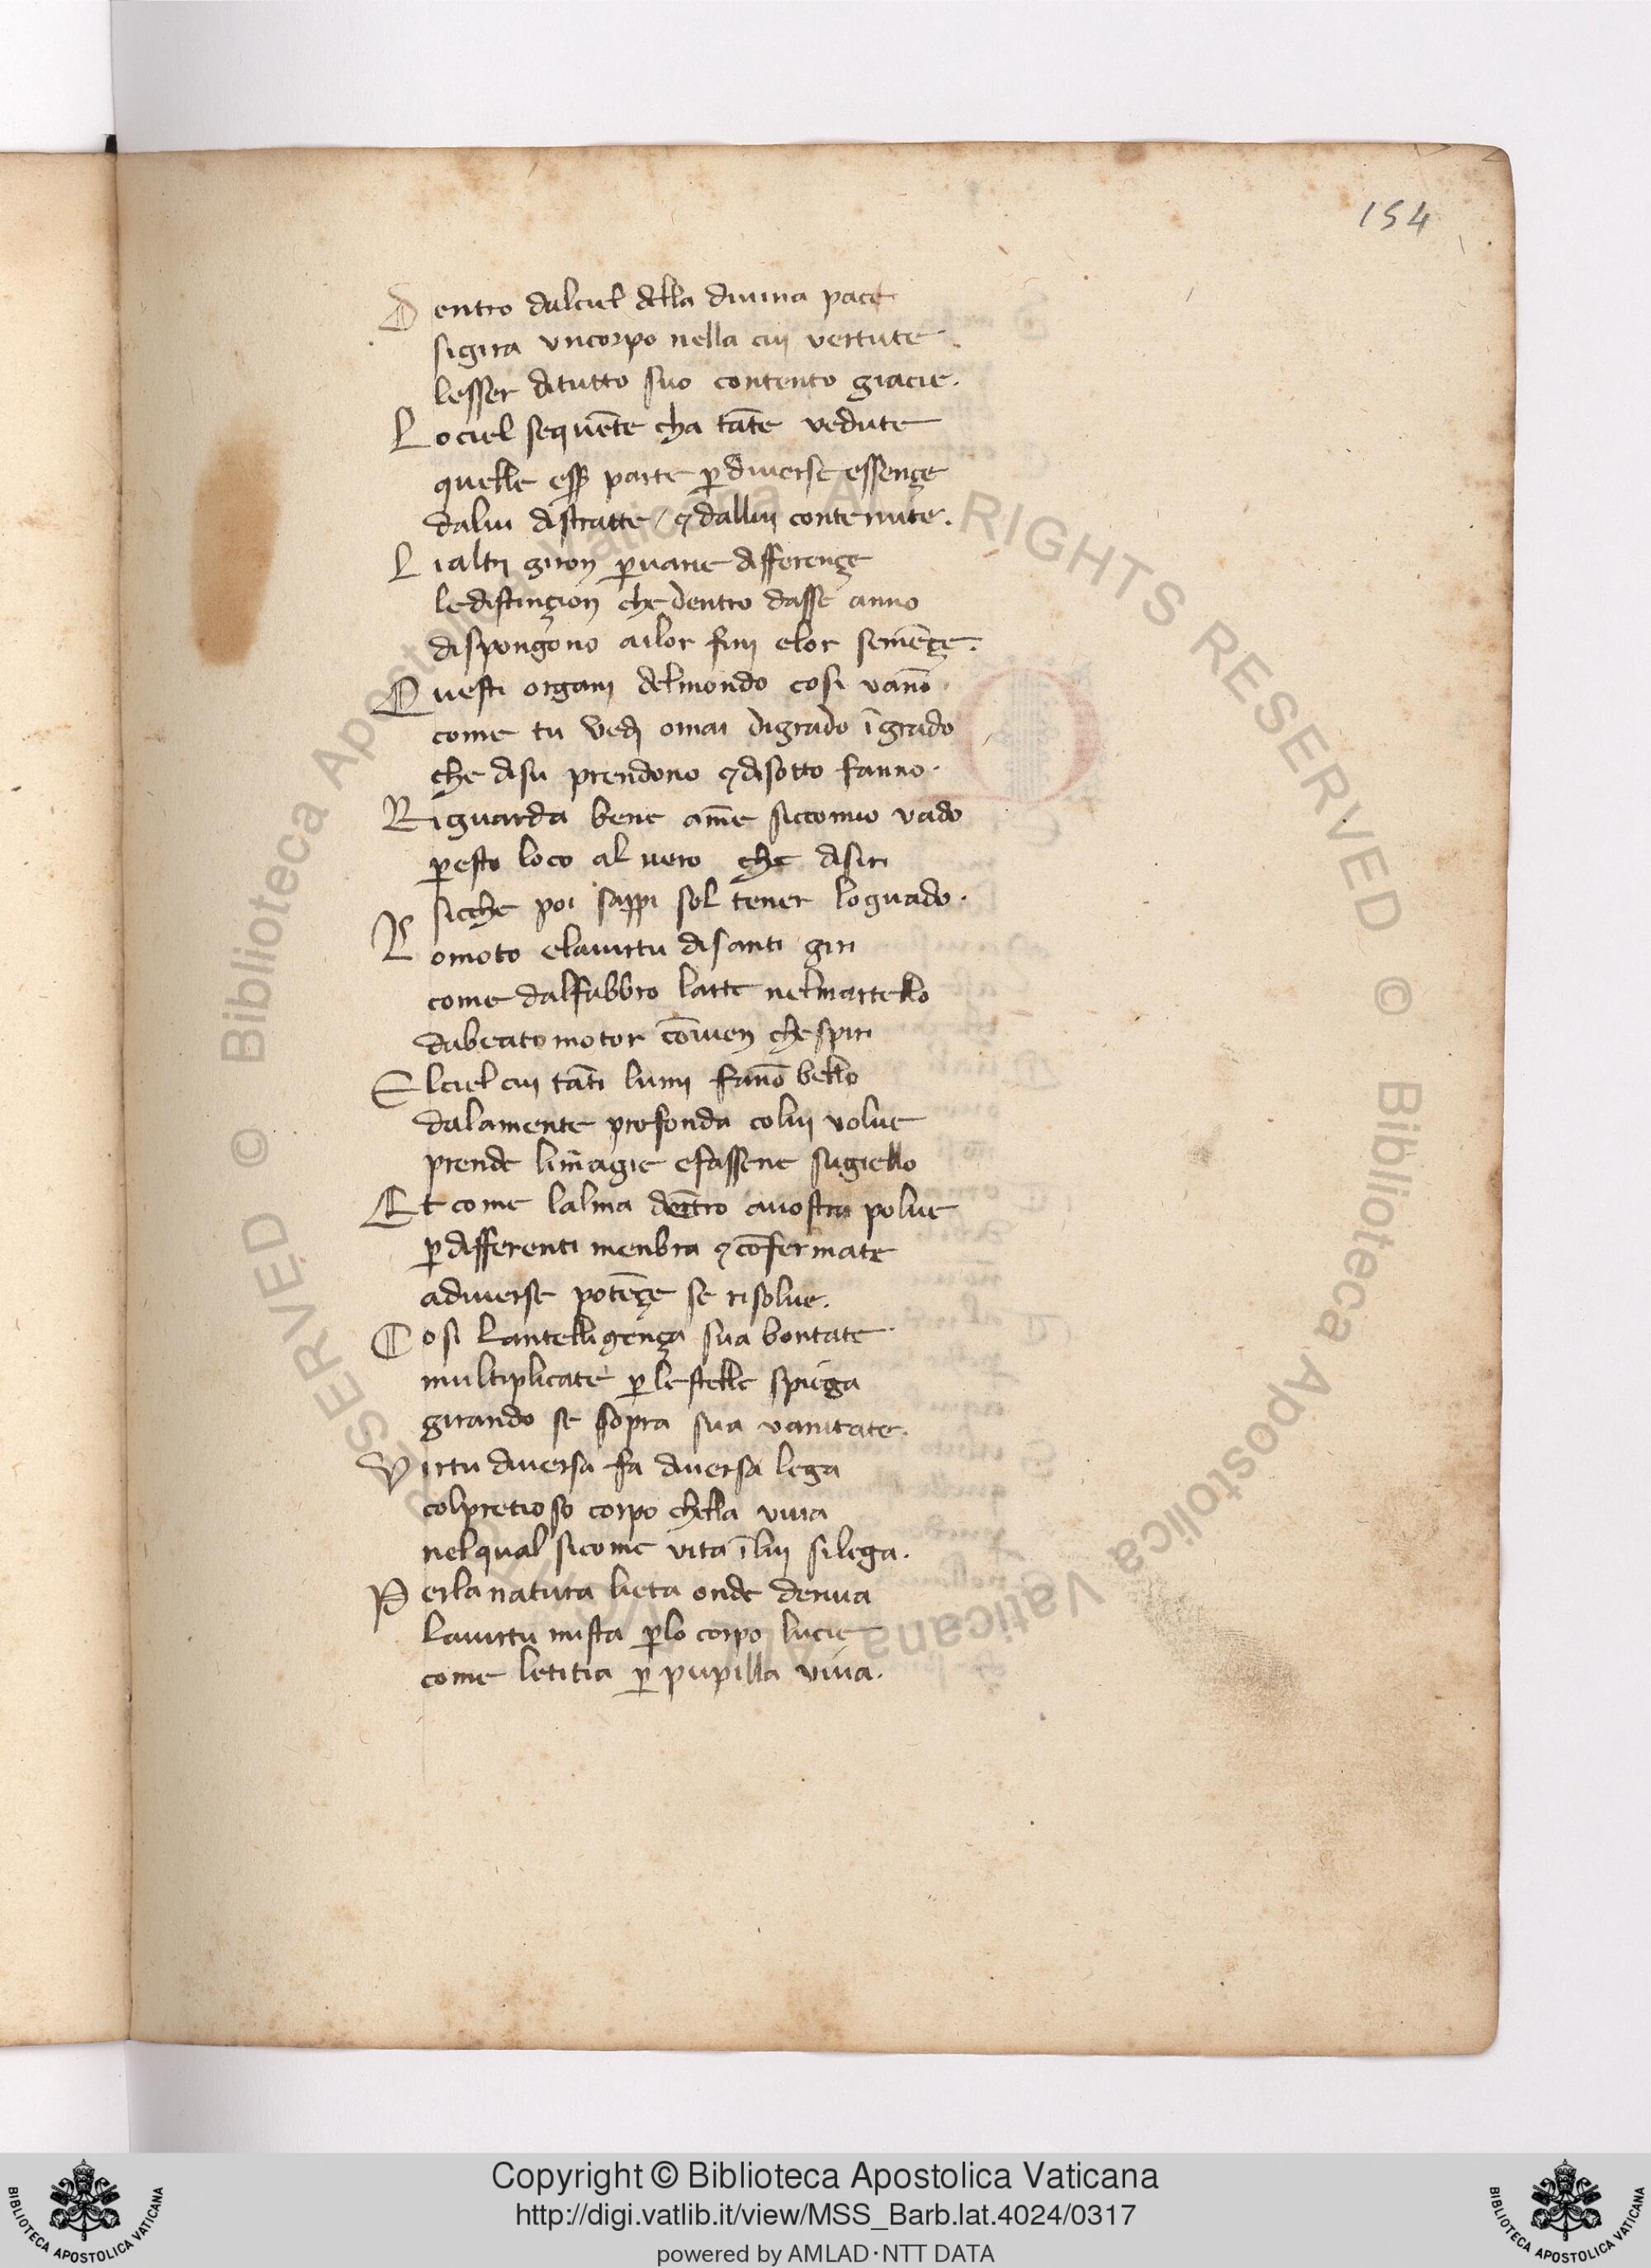 154
Dentro dalciel della diuina pace
sigira vncorpo nella cui vertute
lesser ditutto suo contento giacie.
Lociel sequēte cha tāte vedute
quelle esß parte ꝑdiuerse essençe
dalui distratte / ⁊ dallui contenute.
Lialtri giron ꝑuarie differençe
ledistinçion che dentro dasse anno
dispongono ailor fini elor semēçe.
Questi organi delmondo cosi vanō
come tu vedi omai digrado īgrado
che disu prendono ⁊ disotto fanno.
Riguarda bene amē siccomio vado
ꝑesto loco al uero che disiri
sicche poi sappi sol tener loguado.
Lomoto elauirtu disanti giri
come dalfabbro latte nelmartello
dabeato motor cōuien chespiri
Elciel cui tāti lumi fanō bello
dalamente profonda colui volue
prende limagie efassene sugiello
Et come lalma dentro auostra polue
ꝑdifferenti menbra ⁊ cōfermate
adiuerse potēçe se risolue.
Cosi lantelligença sua bontate
multiplicate ꝑ lestelle spiega
girando se sopra sua vanitate.
Virtu diuersa fa diuersa lega
colpretioso corpo chella viua
nelqual sicome vita īlui silega.
Perla natura lieta onde deriua
lauirtu mista ꝑlo corpo lucie
come letitia ꝑ pupilla viua.
© Biblioteca Apostolica Vaticana ALL RIGHTS RESERVED © Biblioteca Apostolica Vaticana ALL RIGHTS RESERVED
BIBLIOTECA APOSTOLICA VATICANA
Copyright © Biblioteca Apostolica Vaticana
http://digi.vatlib.it/view/MSS_Barb.lat.4024/0317
powered by AMLAD·NTT DATA
BIBLIOTECA APOSTOLICA VATICANA